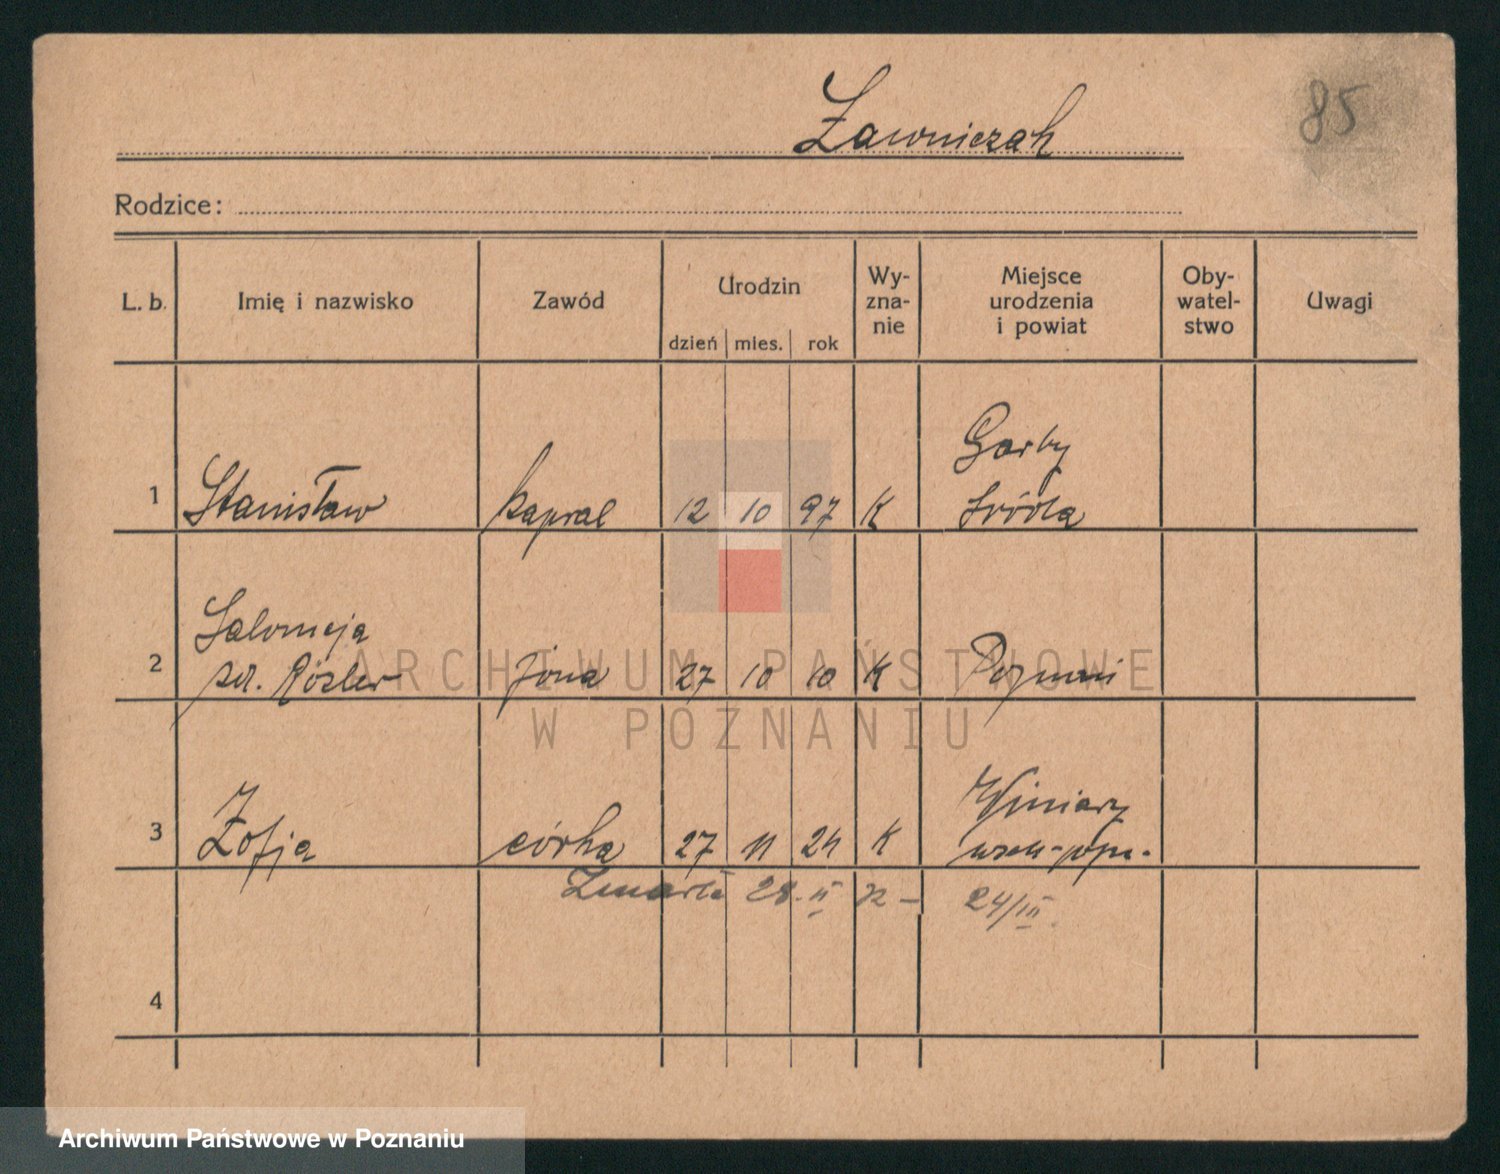 Ławniczak
85
Rodzice:
L. b.
Imię i nazwisko
Zawód
Urodzin
dzień mies. rok
Wy-
zna-
nie
Miejsce
urodzenia
i powiat
Oby-
watel-
stwo
Uwagi
1 Stanisław kapral 12 10 97 K
Garby
Środa
2
Salomeja
Rösler żona 27 10 10 K Poznań
3 Zofja córka 27 11 K
Winiary
Zmarła 28. II 24/III.
4
ARCHIWUM PAŃSTWOWE
W POZNANIU
Archiwum Państwowe w Poznaniu